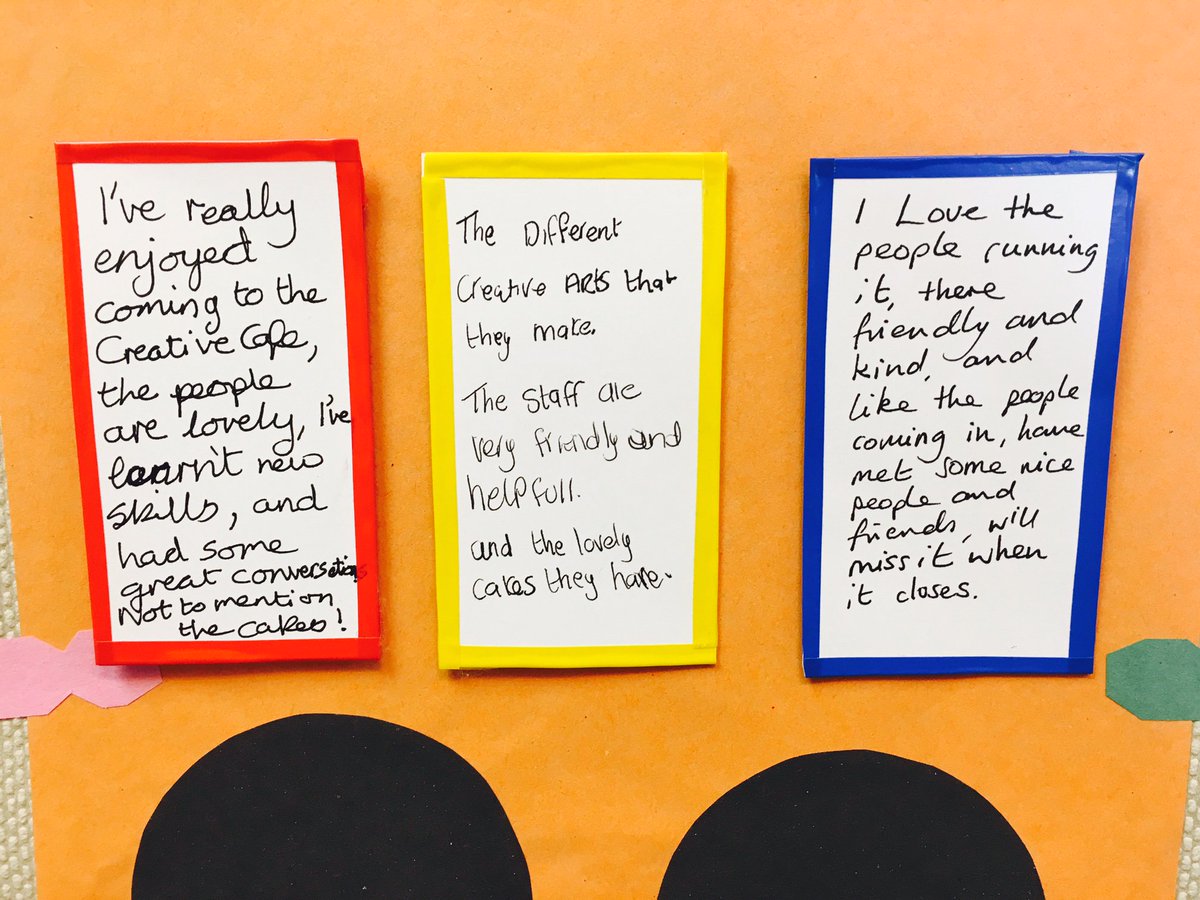 I've really
enjoyed
coming to the
Creative Cafe,
the people
are lovely, I've
learn't new
skills, and
had some
great conversations
Not to mention
the cakes!
The Different
Creative ARTS that
they make.
The Staff are
very friendly and
helpfull.
and the lovely
cakes they have.
I Love the
people running
it, there
friendly and
kind, and
like the people
coming in, have
met some nice
people and
friends, will
miss it when
it closes.